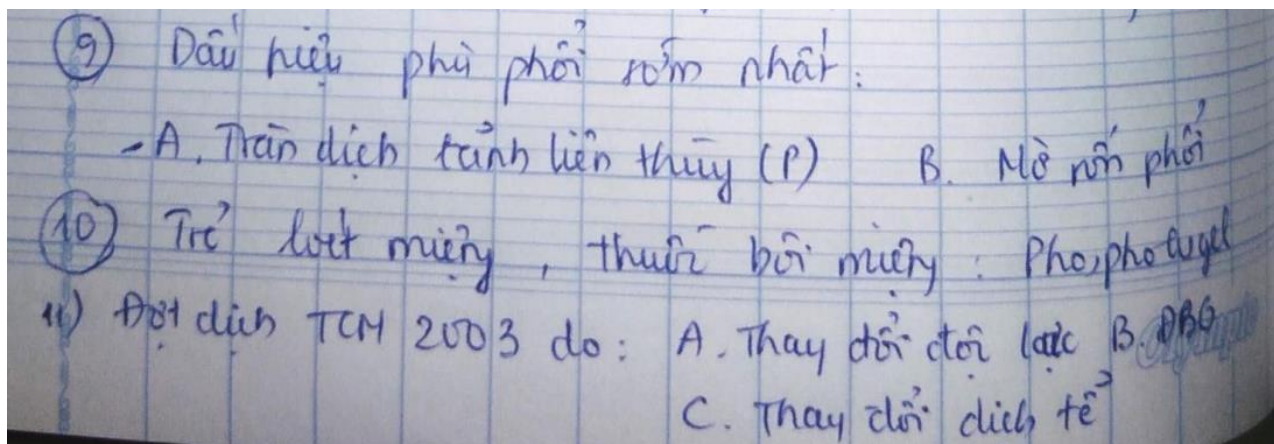 ⑨ Dấu hiệu phù phổi sớm nhất:
- A. Tràn dịch rãnh liên thùy (P) B. Mờ rốn phổi
⑩ Trẻ loét miệng, thuốc bôi miệng: Phosphalugel
11) Đợt dịch TCM 2003 do: A. Thay đổi độc lực B. ĐBG
C. Thay đổi dịch tể